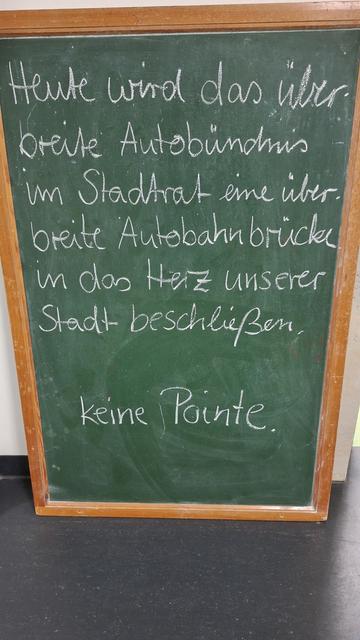 Heute wird das über-
breite Autobündnis
im Stadtrat eine über-
breite Autobahnbrücke
in das Herz unserer
Stadt beschließen.
keine Pointe.